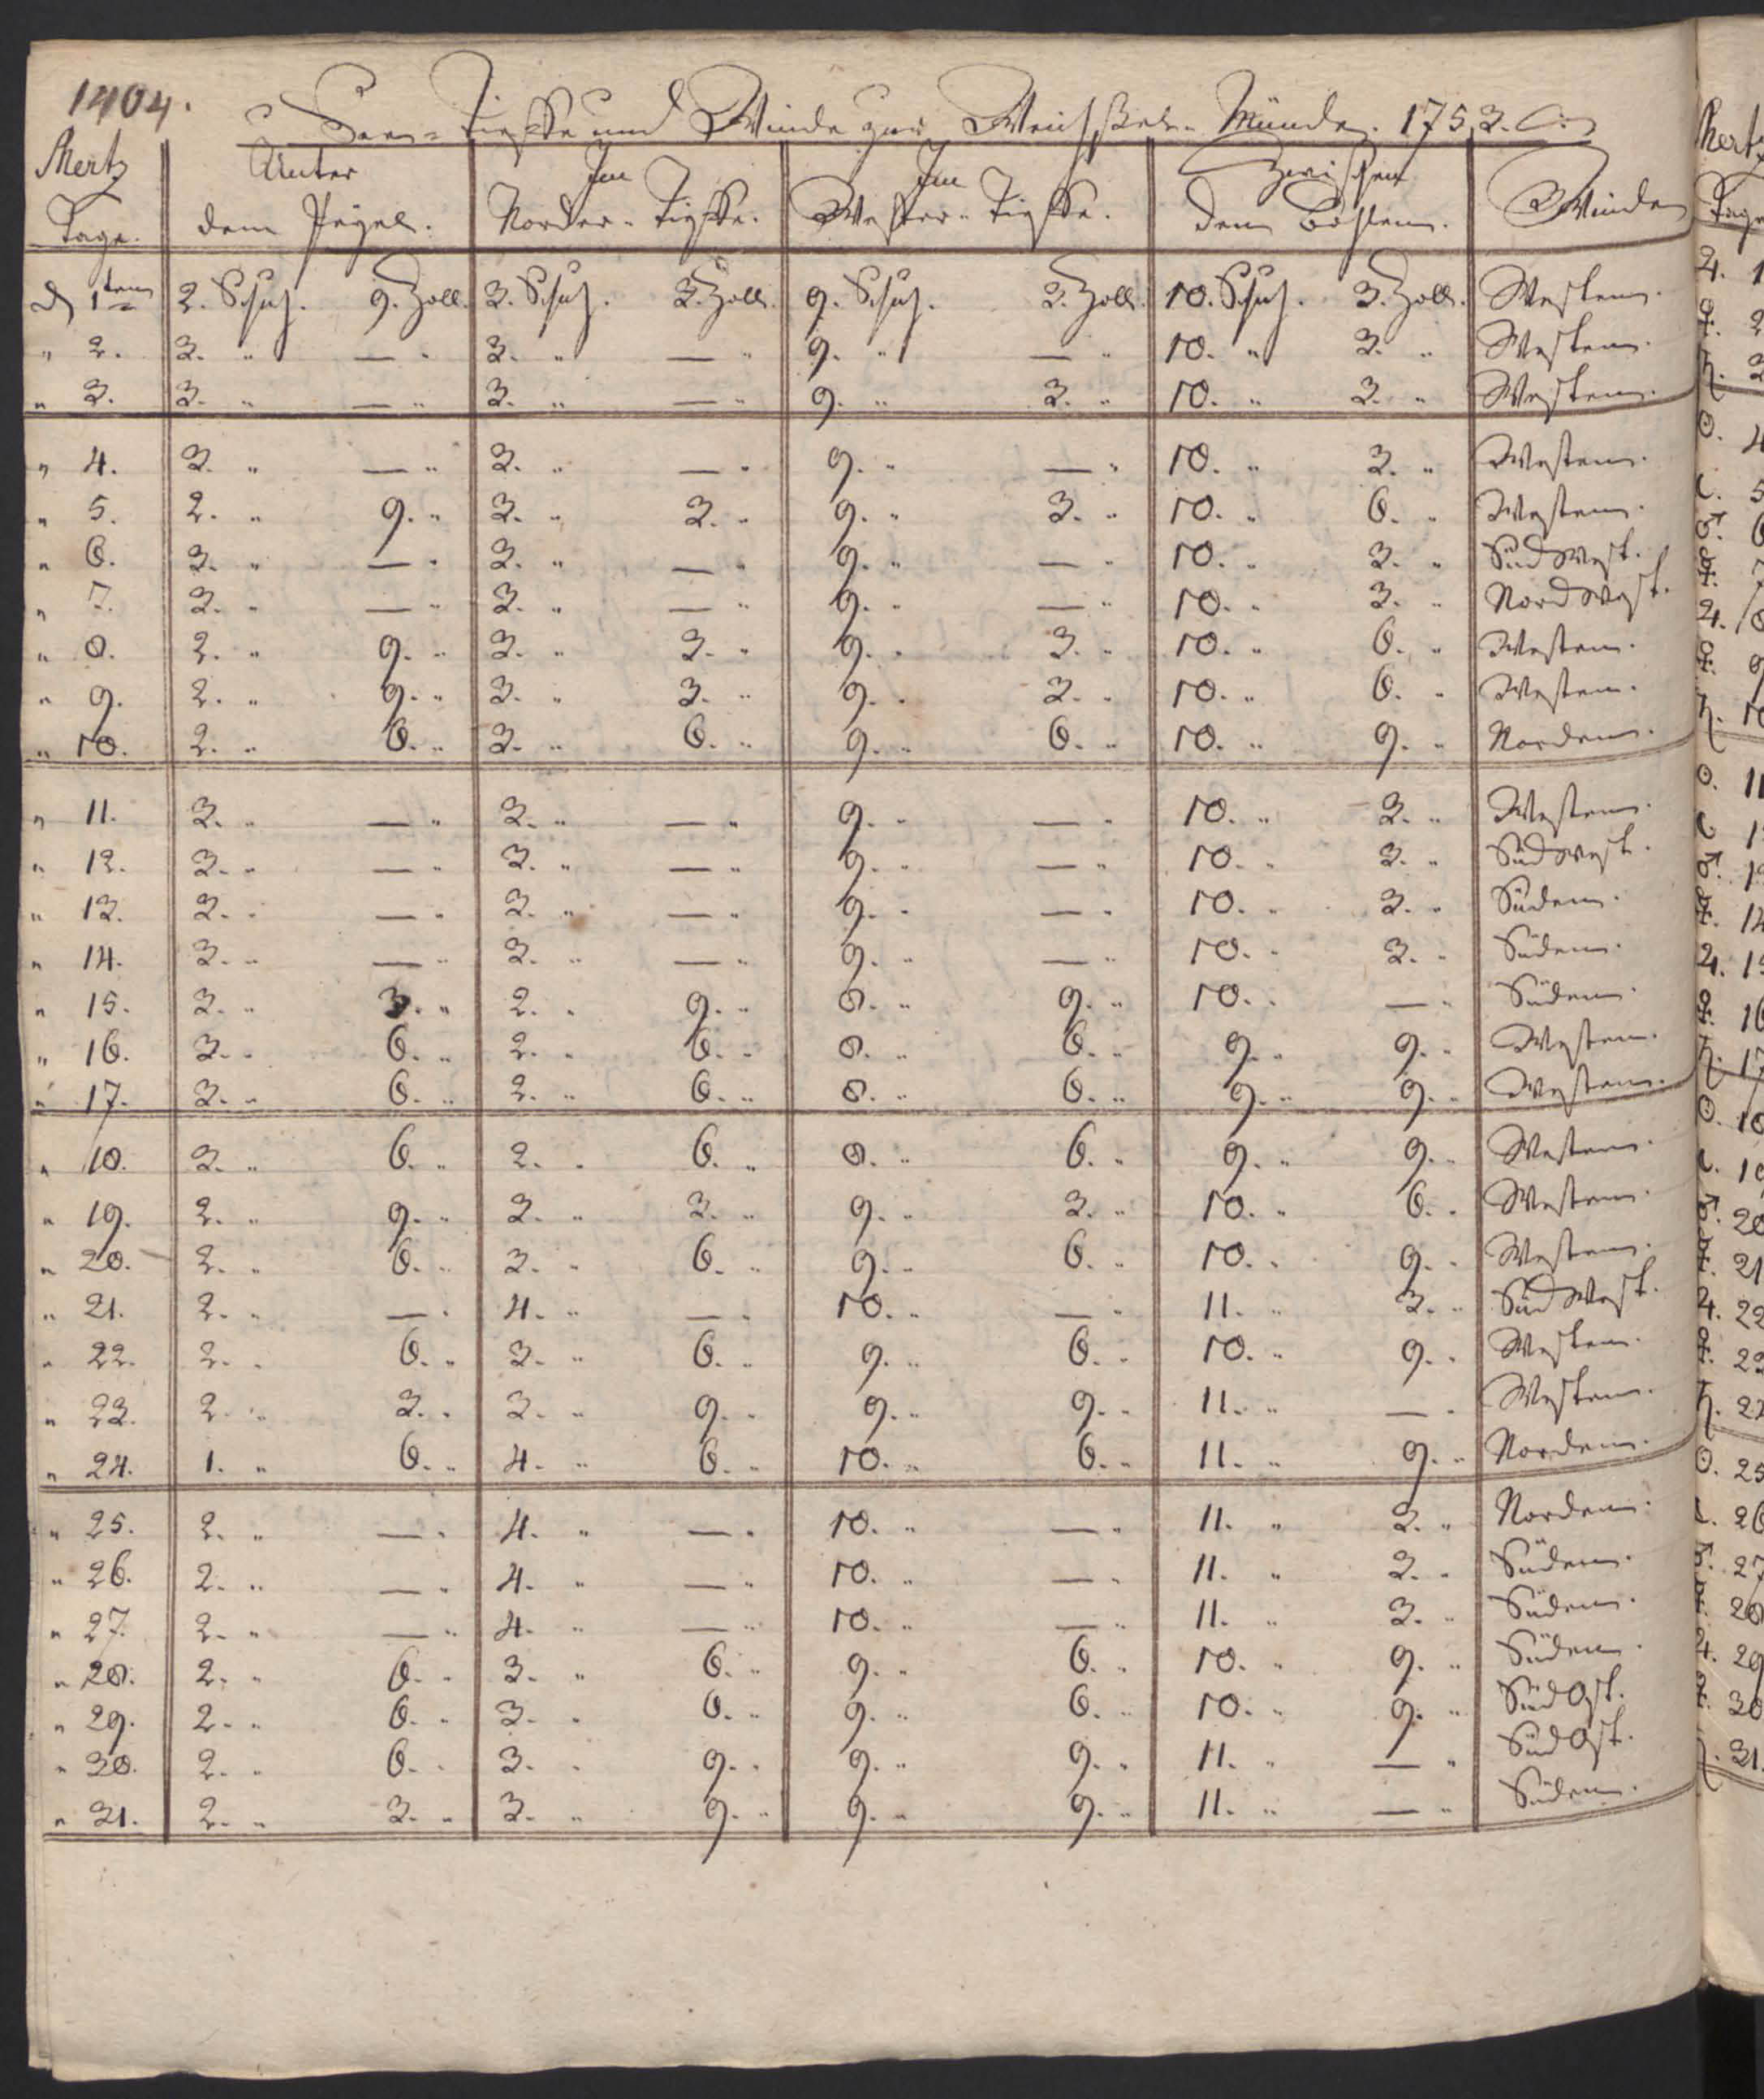 1404.
See=Tieffe und Winde zur Weichsel=Münde. 1753.
Mertz Tage. | Unter dem Pegel. | Im Norder=Tieffe. | Im Wester=Tieffe. | Zwischen den | Winde
d 1ten 2. Schuh. 9. Zoll. 3. Schuh. 3. Zoll. 9. Schuh. 3. Zoll. 10. Schuh. 3. Zoll. Westen.
" 2. 3. " — " 3. " — " 9. " — " 10. " 3. " Westen.
" 3. 3. " — " 3. " — " 9. " 3. " 10. " 3. " Westen.
" 4. 3. " — " 3. " — " 9. " — " 10. " 3. " Westen.
" 5. 2. " 9. " 3. " 3. " 9. " 3. " 10. " 6. " Westen.
" 6. 3. " — " 3. " — " 9. " — " 10. " 3. " Süd West.
" 7. 3. " — " 3. " — " 9. " — " 10. " 3. " Nord West.
" 8. 2. " 9. " 3. " 3. " 9. " 3. " 10. " 6. " Westen.
" 9. 2. " 9. " 3. " 3. " 9. " 3. " 10. " 6. " Westen.
" 10. 2. " 6. " 3. " 6. " 9. " 6. " 10. " 9. " Norden.
" 11. 3. " — " 3. " — " 9. " — " 10. " 3. " Westen.
" 12. 3. " — " 3. " — " 9. " — " 10. " 3. " Süd West.
" 13. 3. " — " 3. " — " 9. " — " 10. " 3. " Süden.
" 14. 3. " — " 3. " — " 9. " — " 10. " 3. " Süden.
" 15. 3. " 3. " 2. " 9. " 8. " 9. " 10. " — " Süden.
" 16. 3. " 6. " 2. " 6. " 8. " 6. " 9. " 9. " Westen.
" 17. 3. " 6. " 2. " 6. " 8. " 6. " 9. " 9. " Westen.
" 18. 3. " 6. " 2. " 6. " 8. " 6. " 9. " 9. " Westen.
" 19. 2. " 9. " 3. " 3. " 9. " 3. " 10. " 6. " Westen.
" 20. 2. " 6. " 3. " 6. " 9. " 6. " 10. " 9. " Westen.
" 21. 2. " — " 4. " — " 10. " — " 11. " 3. " Süd West.
" 22. 2. " 6. " 3. " 6. " 9. " 6. " 10. " 9. " Westen.
" 23. 2. " 3. " 3. " 9. " 9. " 9. " 11. " — " Westen.
" 24. 1. " 6. " 4. " 6. " 10. " 6. " 11. " 9. " Norden.
" 25. 2. " — " 4. " — " 10. " — " 11. " 3. " Norden.
" 26. 2. " — " 4. " — " 10. " — " 11. " 3. " Süden.
" 27. 2. " — " 4. " — " 10. " — " 11. " 3. " Süden.
" 28. 2. " 6. " 3. " 6. " 9. " 6. " 10. " 9. " Süden.
" 29. 2. " 6. " 3. " 6. " 9. " 6. " 10. " 9. " Süd Ost.
" 30. 2. " 6. " 3. " 9. " 9. " 9. " 11. " — " Süd Ost.
" 31. 2. " 3. " 3. " 9. " 9. " 9. " 11. " — " Süden.
Mertz
Tage
♃. 1
♀. 2
♄. 3
☉. 4
☾. 5
♂. 6
☿. 7
♃. 8
♀. 9
♄. 10
☉. 11
☾. 1
♂. 1
☿. 14
♃. 15
♀. 16
♄. 17
☉. 18
☾. 19
♂. 20
☿. 21
♃. 22
♀. 23
♄. 2
☉. 25
☾. 26
♂. 27
☿. 28
♃. 29
♀. 30
♄. 31.